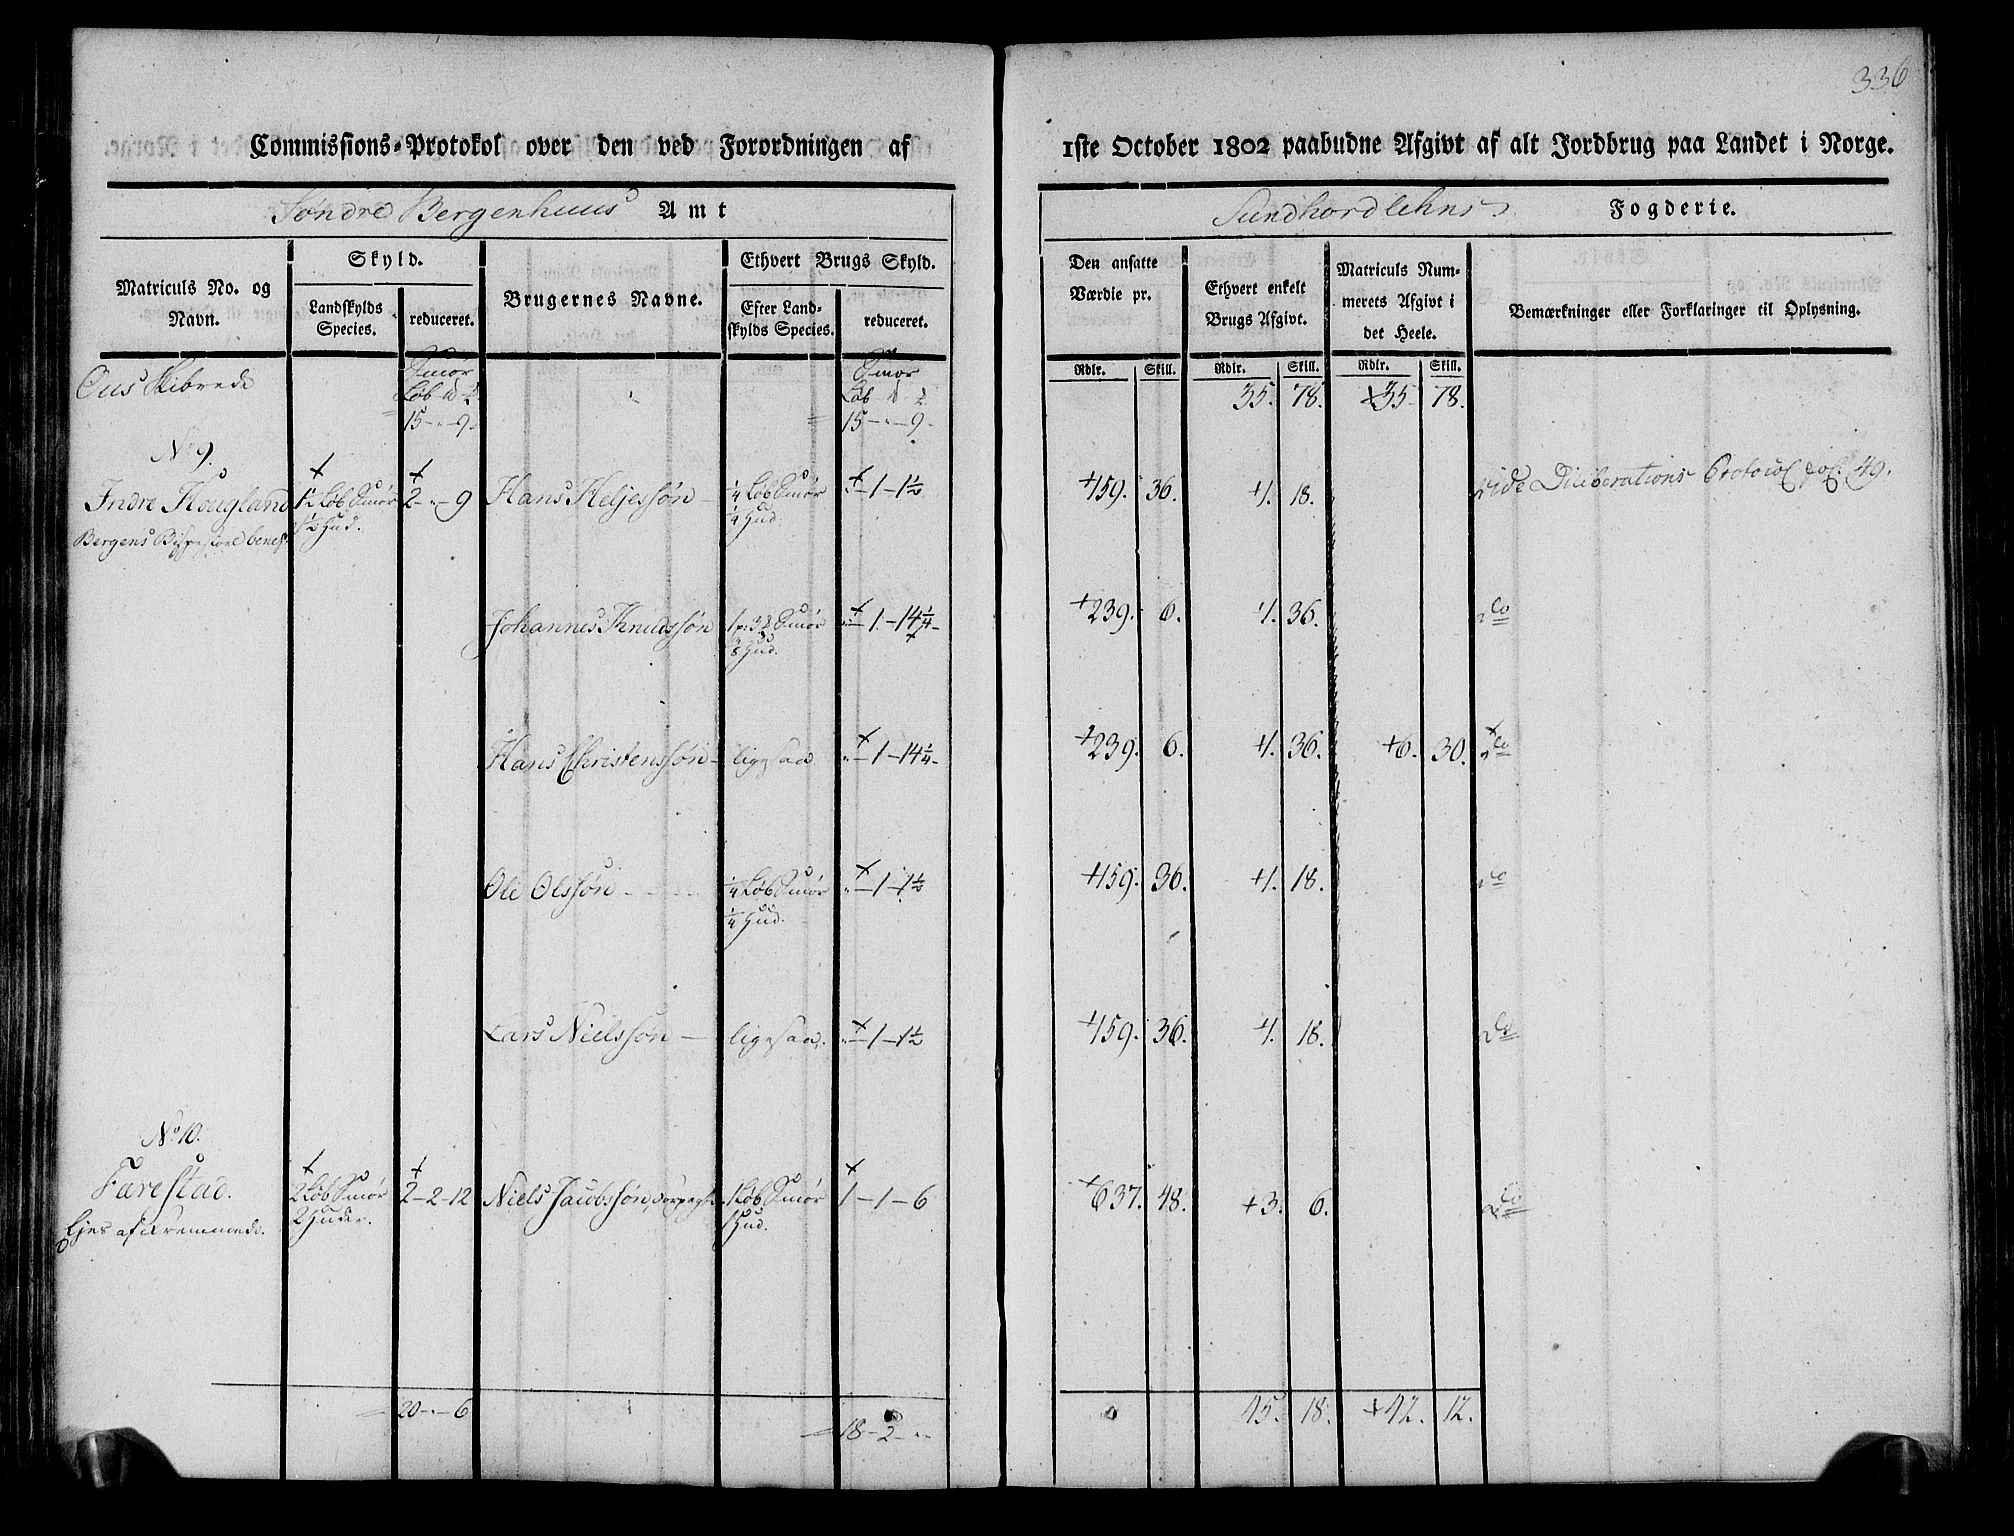 336
Commissions-Protokol over den ved Forordningen af 1ste October 1802 paabudne Afgivt af alt Jordbrug paa Landet i Norge.
Søndre Bergenhuus Amt Sundhordlehns Fogderie.
Matriculs No. og Navn. Skyld. Brugernes Navne. Ethvert Brugs Skyld. Den ansatte Værdie pr. Ethvert enkelt Brugs Afgivt. Matriculs Nummerets Afgivt i det Heele. Bemærkninger eller Forklaringer til Oplysning.
Landskylds Species. reduceret. Efter Landskylds Species. reduceret.
Rdlr. Skill. Rdlr. Skill. Rdlr. Skill.
Ous Skibrede Smør Smør 35. 78. +35. 78.
Løb Løb
15-"-9- 15-"-9-
No 9.
Indre Hougland 1½ Løb Smør 2-"-9 Hans Heljessøn ¼ Løb Smør "-1-1½ +159. 36. +1. 18. vide Deliberations Protocol fol. 49.
Bergens Bispestoel benef. Hud. ¼ Hud.
Johannes Knudssøn Smør "-1-14¼ +239. 6. +1. 36. Do
Hud.
Hans Christenssøn ligesaa "-1-14¼ +239. 6. +1. 36. +6. 30. Do
Ole Olssøn ¼ Løb Smør "-1-1½ +159. 36. +1. 18. Do
¼ Hud.
Lars Nielssøn ligesaa. "-1-1½ +159. 36. +1. 18. Do
No 10.
Færestad. 2 Løb Smør 2-2-12 Niels Jacobssøn 1 Løb Smør 1-1-6 +637. 48. +3. 6. Do
Ejes af Fremmede. 2 Huder. 1 Hud.
20-"-6 18-2-" 45. 18. +42. 12.